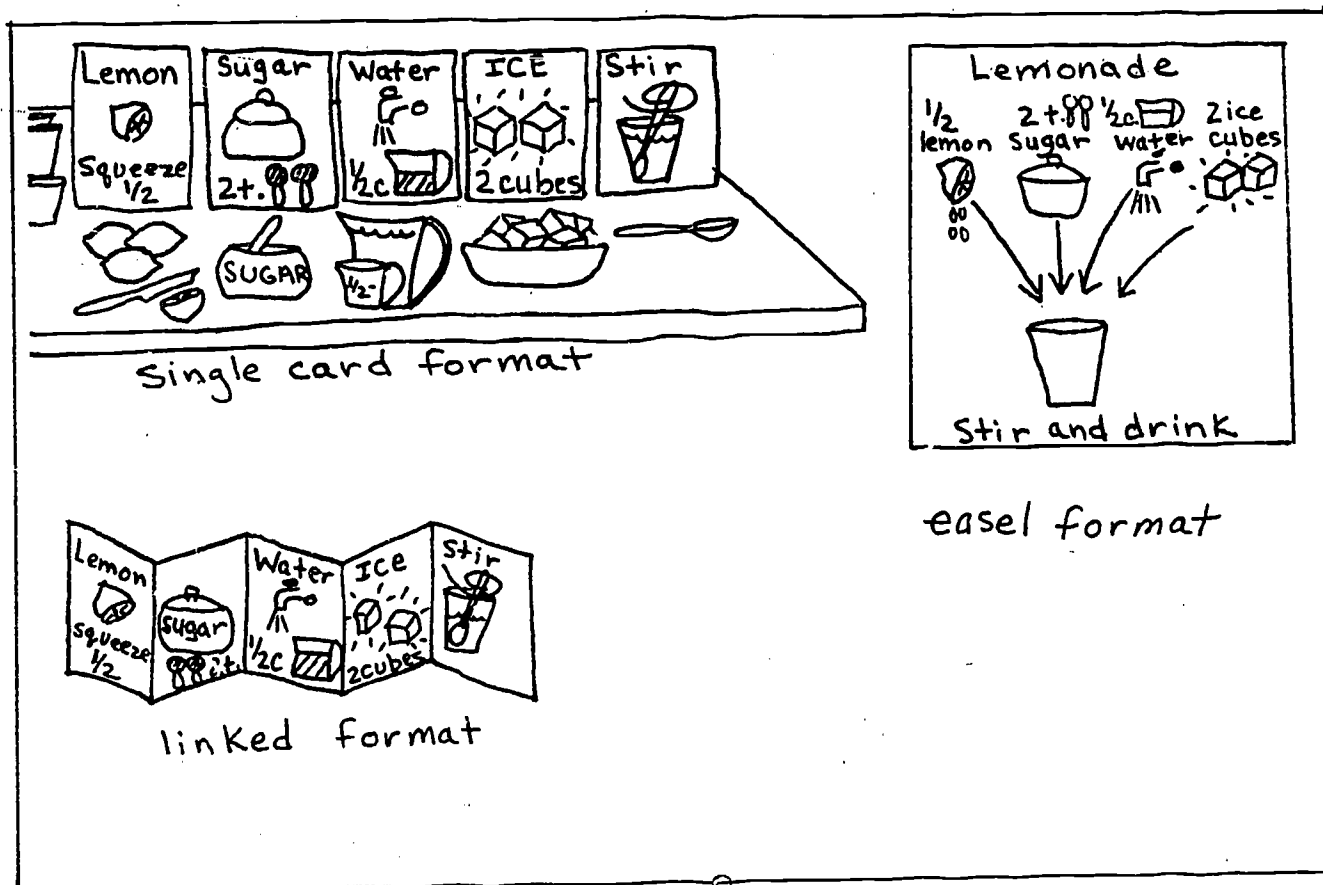 Lemon
Squeeze
1/2
Sugar
2t.
Water
1/2c
ICE
2 cubes
Stir
SUGAR
1/2-
Single card format
Lemonade
1/2
lemon
2 t.
Sugar
1/2c.
water
2 ice
cubes
Stir and drink
easel format
Lemon
Squeeze
1/2
Sugar
Water
1/2c
ICe
2cubes
Stir
linked format